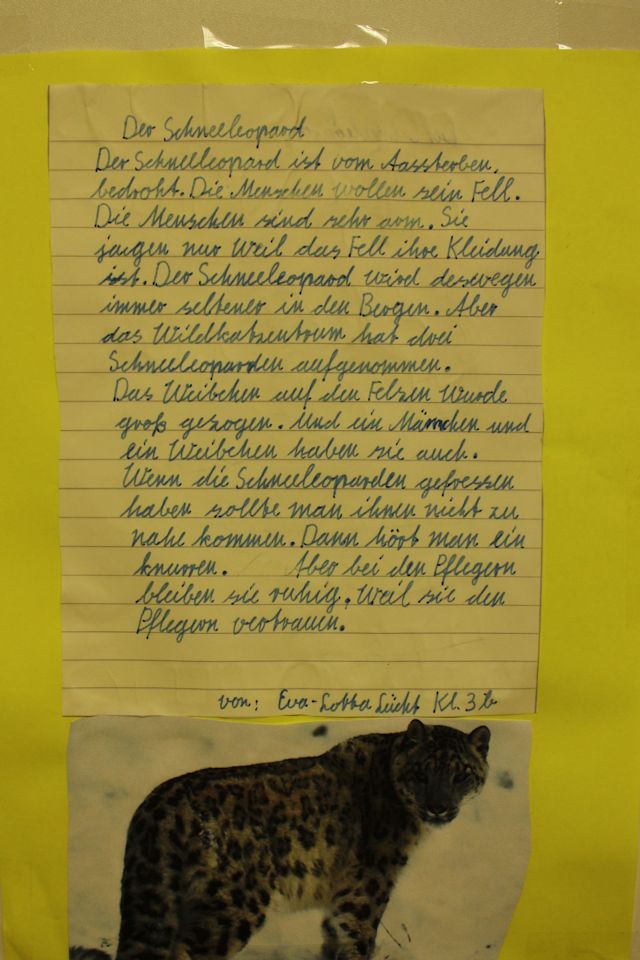 Der Schneeleopard
Der Schneeleopard ist vom Aassterben,
bedroht. Die Menschen wollen sein Fell.
Die Menschen sind sehr arm. Sie
jargen nur Weil das Fell ihre Kleidung
ist. Der Schneeleopard wird deswegen
immer seltener in den Bergen. Aber
das Wildkatzentrum hat drei
Schneeleoparden aufgenommen.
Das Weibchen auf den Felzen wurde
groß gezogen. Und ein Männchen und
ein Weibchen haben sie auch.
Wenn die Schneeleoparden gefressen
haben sollte man ihnen nicht zu
nahe kommen. Dann hört man ein
knurren. Aber bei den Pflegern
bleiben sie ruhig, Weil sie den
Pflegern vertrauen.
von: Eva-Lotta Lücht Kl. 3b